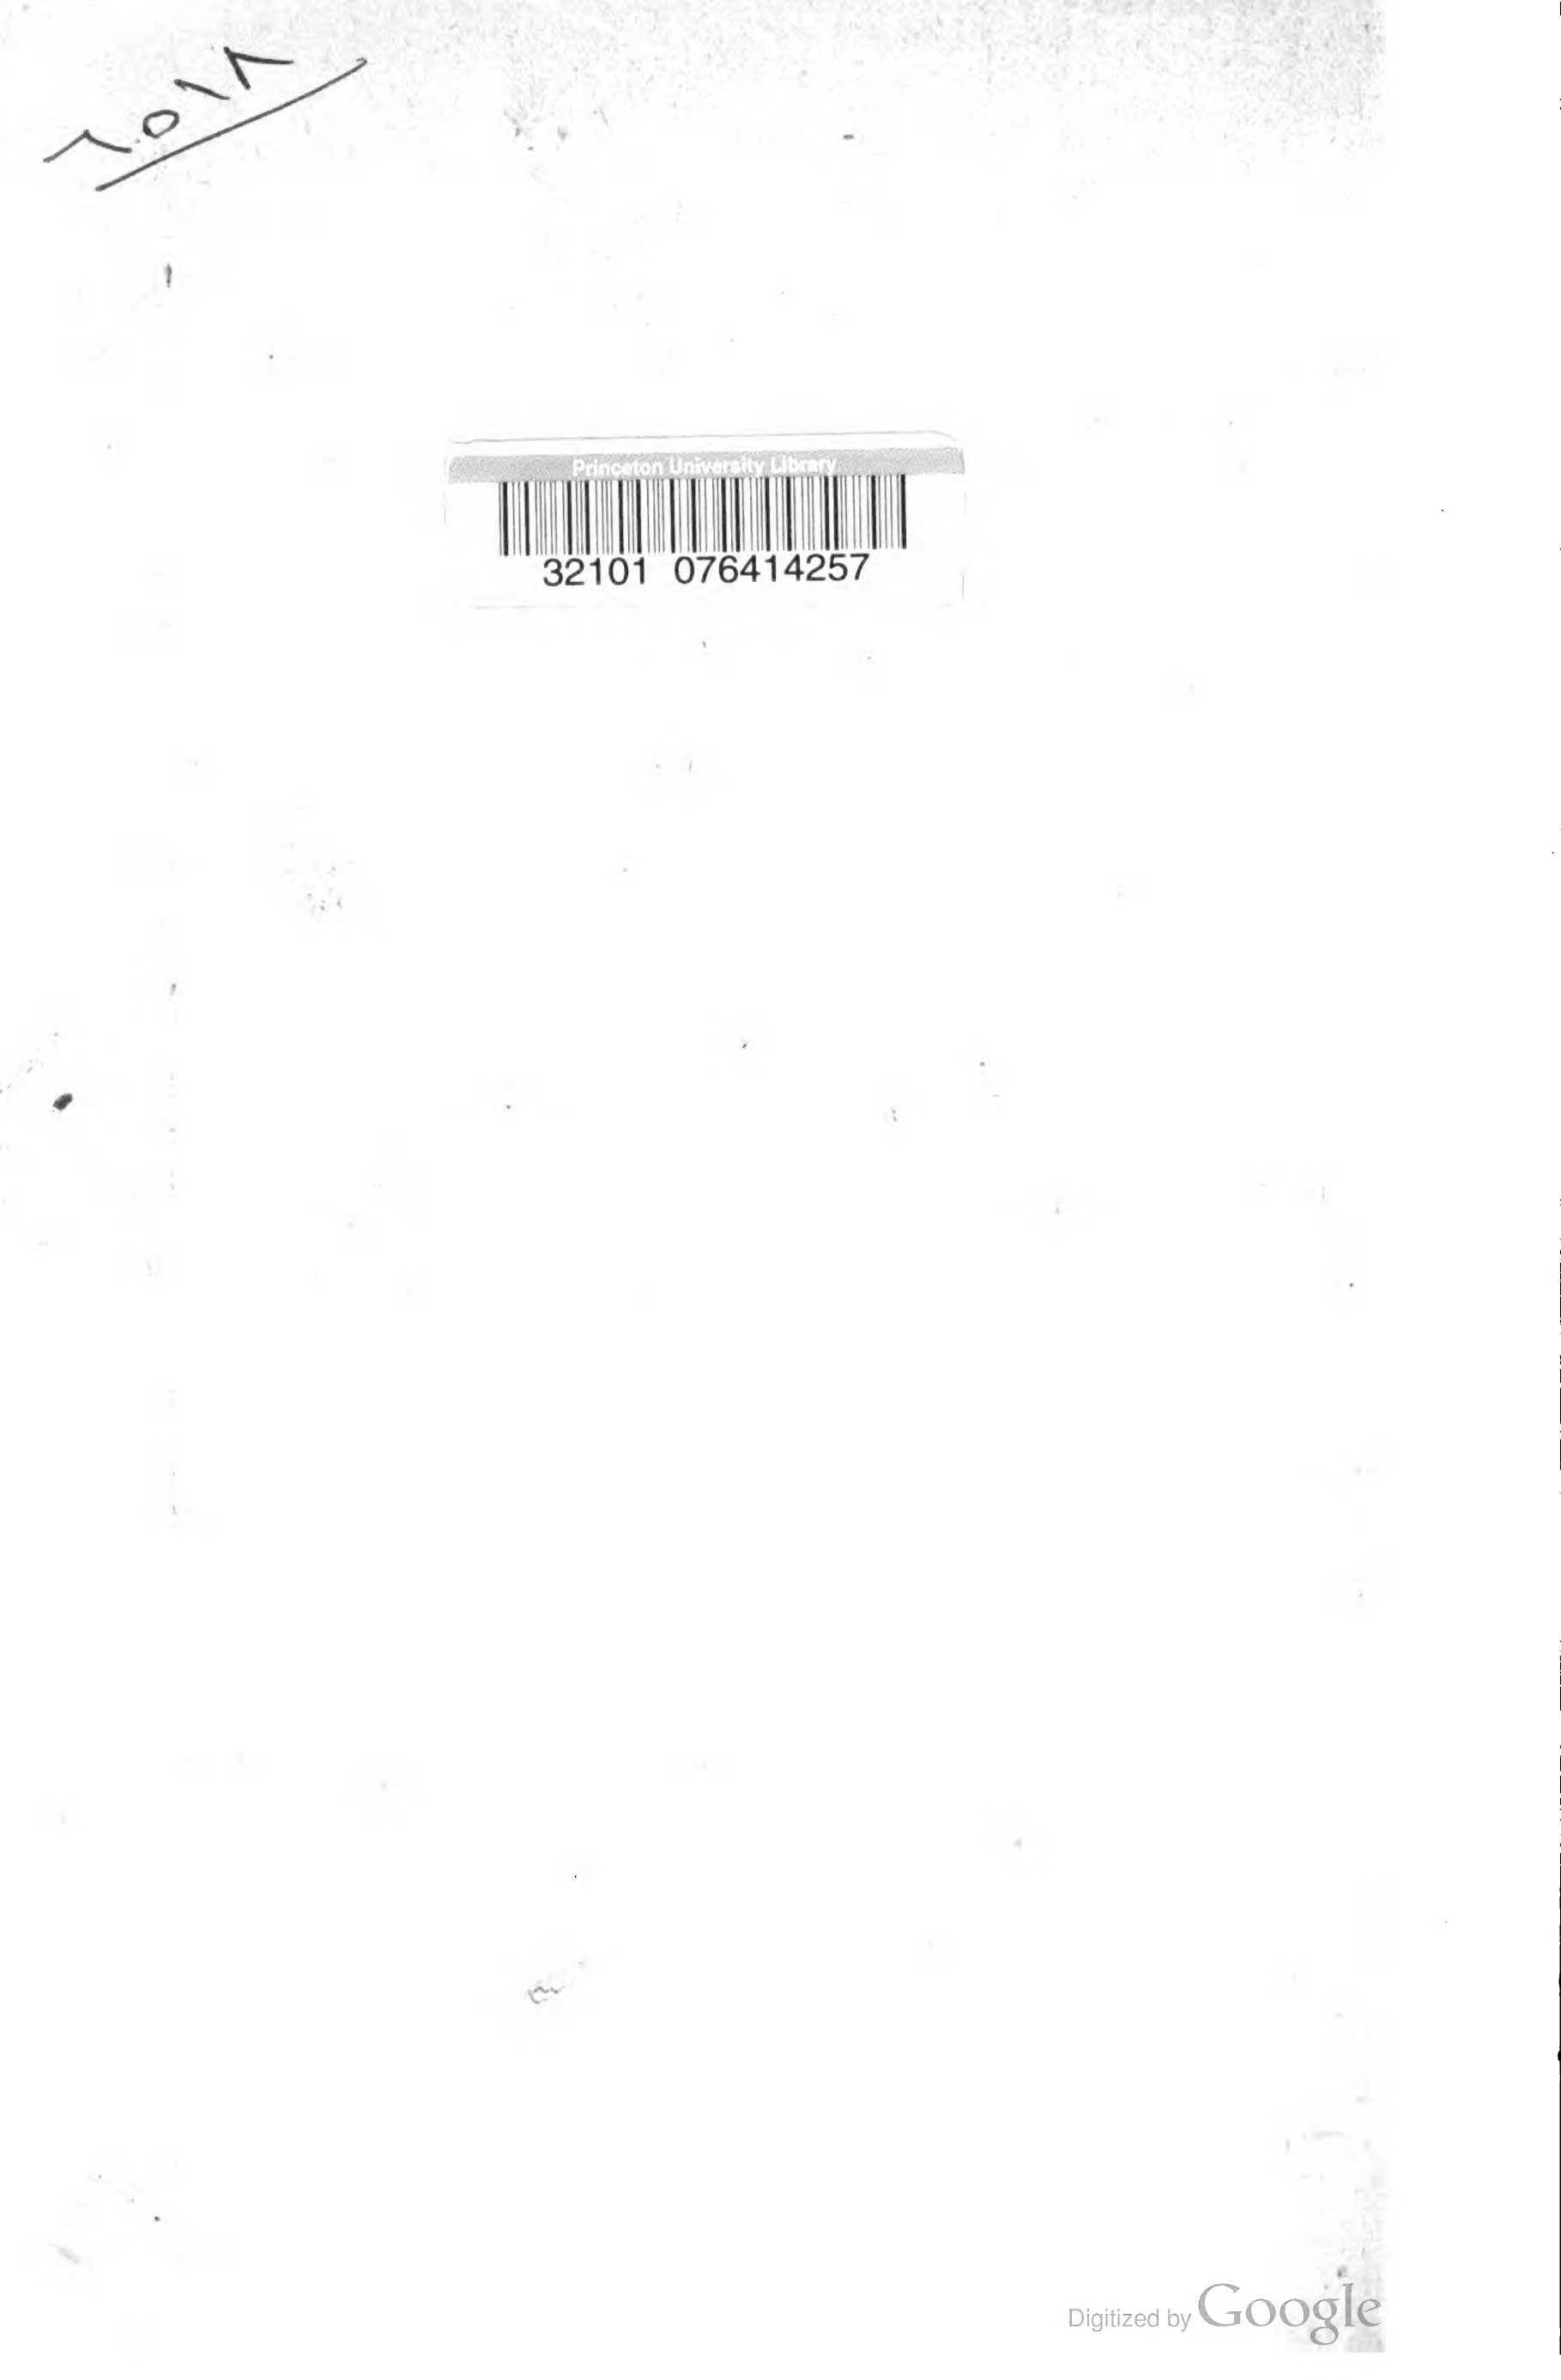 ٨٥١٨
Princeton University Library
32101 076414257
Digitized by Google